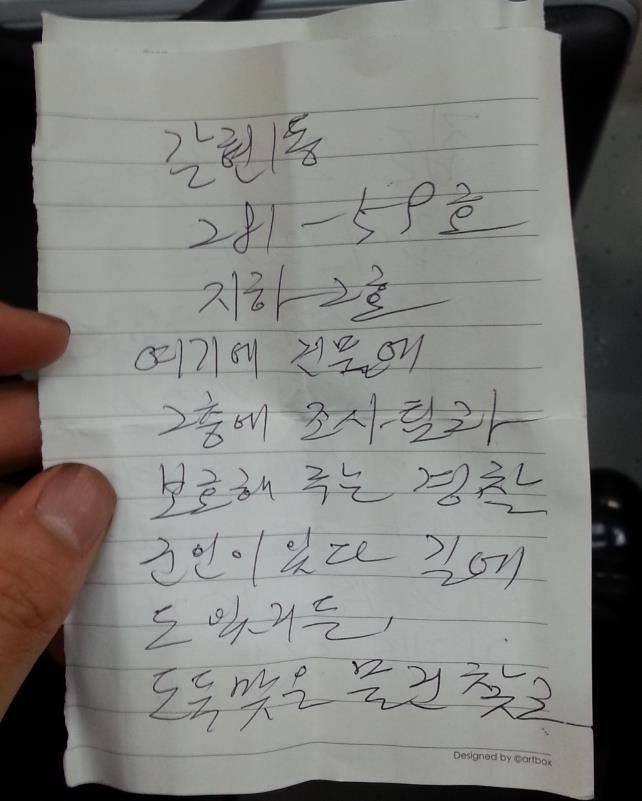 갈현1동
281-59호
지하 2호
여기에 건물에
2층에 조사하고
보호해 주는 경찰
군인이 있다 길에
도
도둑맞은 물건 찾고
Designed by ©artbox